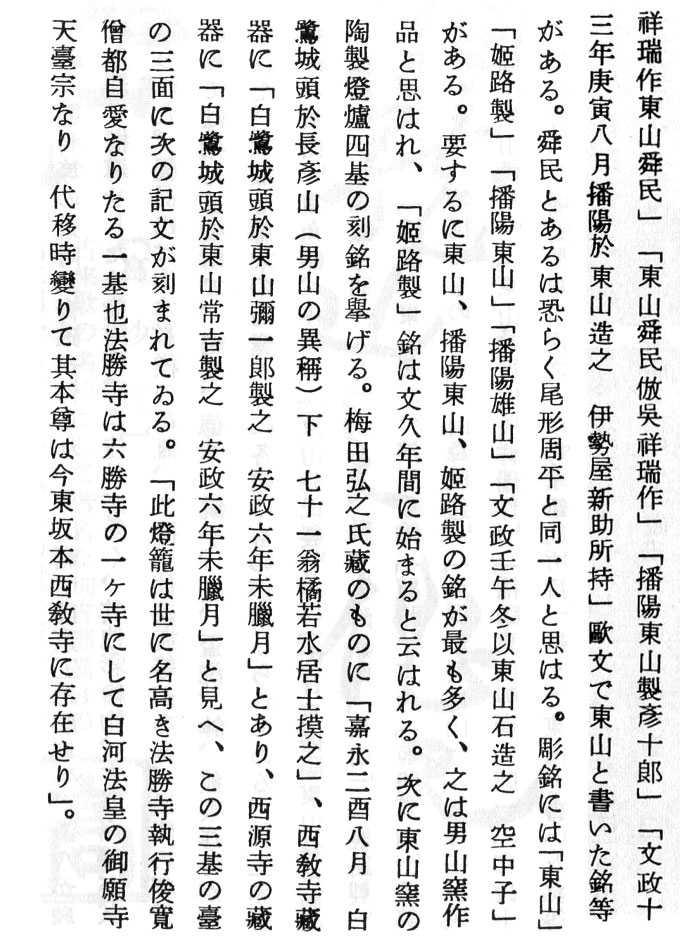 祥瑞作東山舜民」　「東山舜民倣吳祥瑞作」　「播陽東山製彥十郎」　「文政十
三年庚寅八月播陽於東山造之　伊勢屋新助所持」歐文で東山と書いた銘等
がある。舜民とあるは恐らく尾形周平と同一人と思はる。彫銘には「東山」
「姬路製」「播陽東山」「播陽雄山」「文政壬午冬以東山石造之　空中子」
がある。要するに東山、播陽東山、姬路製の銘が最も多く、之は男山窯作
品と思はれ、「姬路製」銘は文久年間に始まると云はれる。次に東山窯の
陶製燈爐四基の刻銘を擧げる。梅田弘之氏藏のものに「嘉永二酉八月　白
鷺城頭於長彥山（男山の異稱）下　七十一翁橘若水居士摸之」、西敎寺藏
器に「白鷺城頭於東山彌一郞製之　安政六年未臘月」とあり、西源寺の藏
器に「白鷺城頭於東山常吉製之　安政六年未臘月」と見へ、この三基の臺
の三面に次の記文が刻まれてゐる。「此燈籠は世に名高き法勝寺執行俊寬
僧都自愛なりたる一基也法勝寺は六勝寺の一ヶ寺にして白河法皇の御願寺
天臺宗なり　代移時變りて其本尊は今東坂本西敎寺に存在せり」。